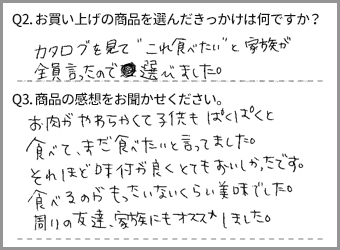 Q2. お買い上げの商品を選んだきっかけは何ですか？
カタログを見て"これ食べたい"と家族が
全員言ったので 選びました。
Q3. 商品の感想をお聞かせください。
お肉がやわらかくて子供も ぱくぱくと
食べて、まだ食べたいと言ってました。
それほど味付が良くとてもおいしかったです。
食べるのがもったいないくらい美味でした。
周りの友達、家族にもオススメしました。